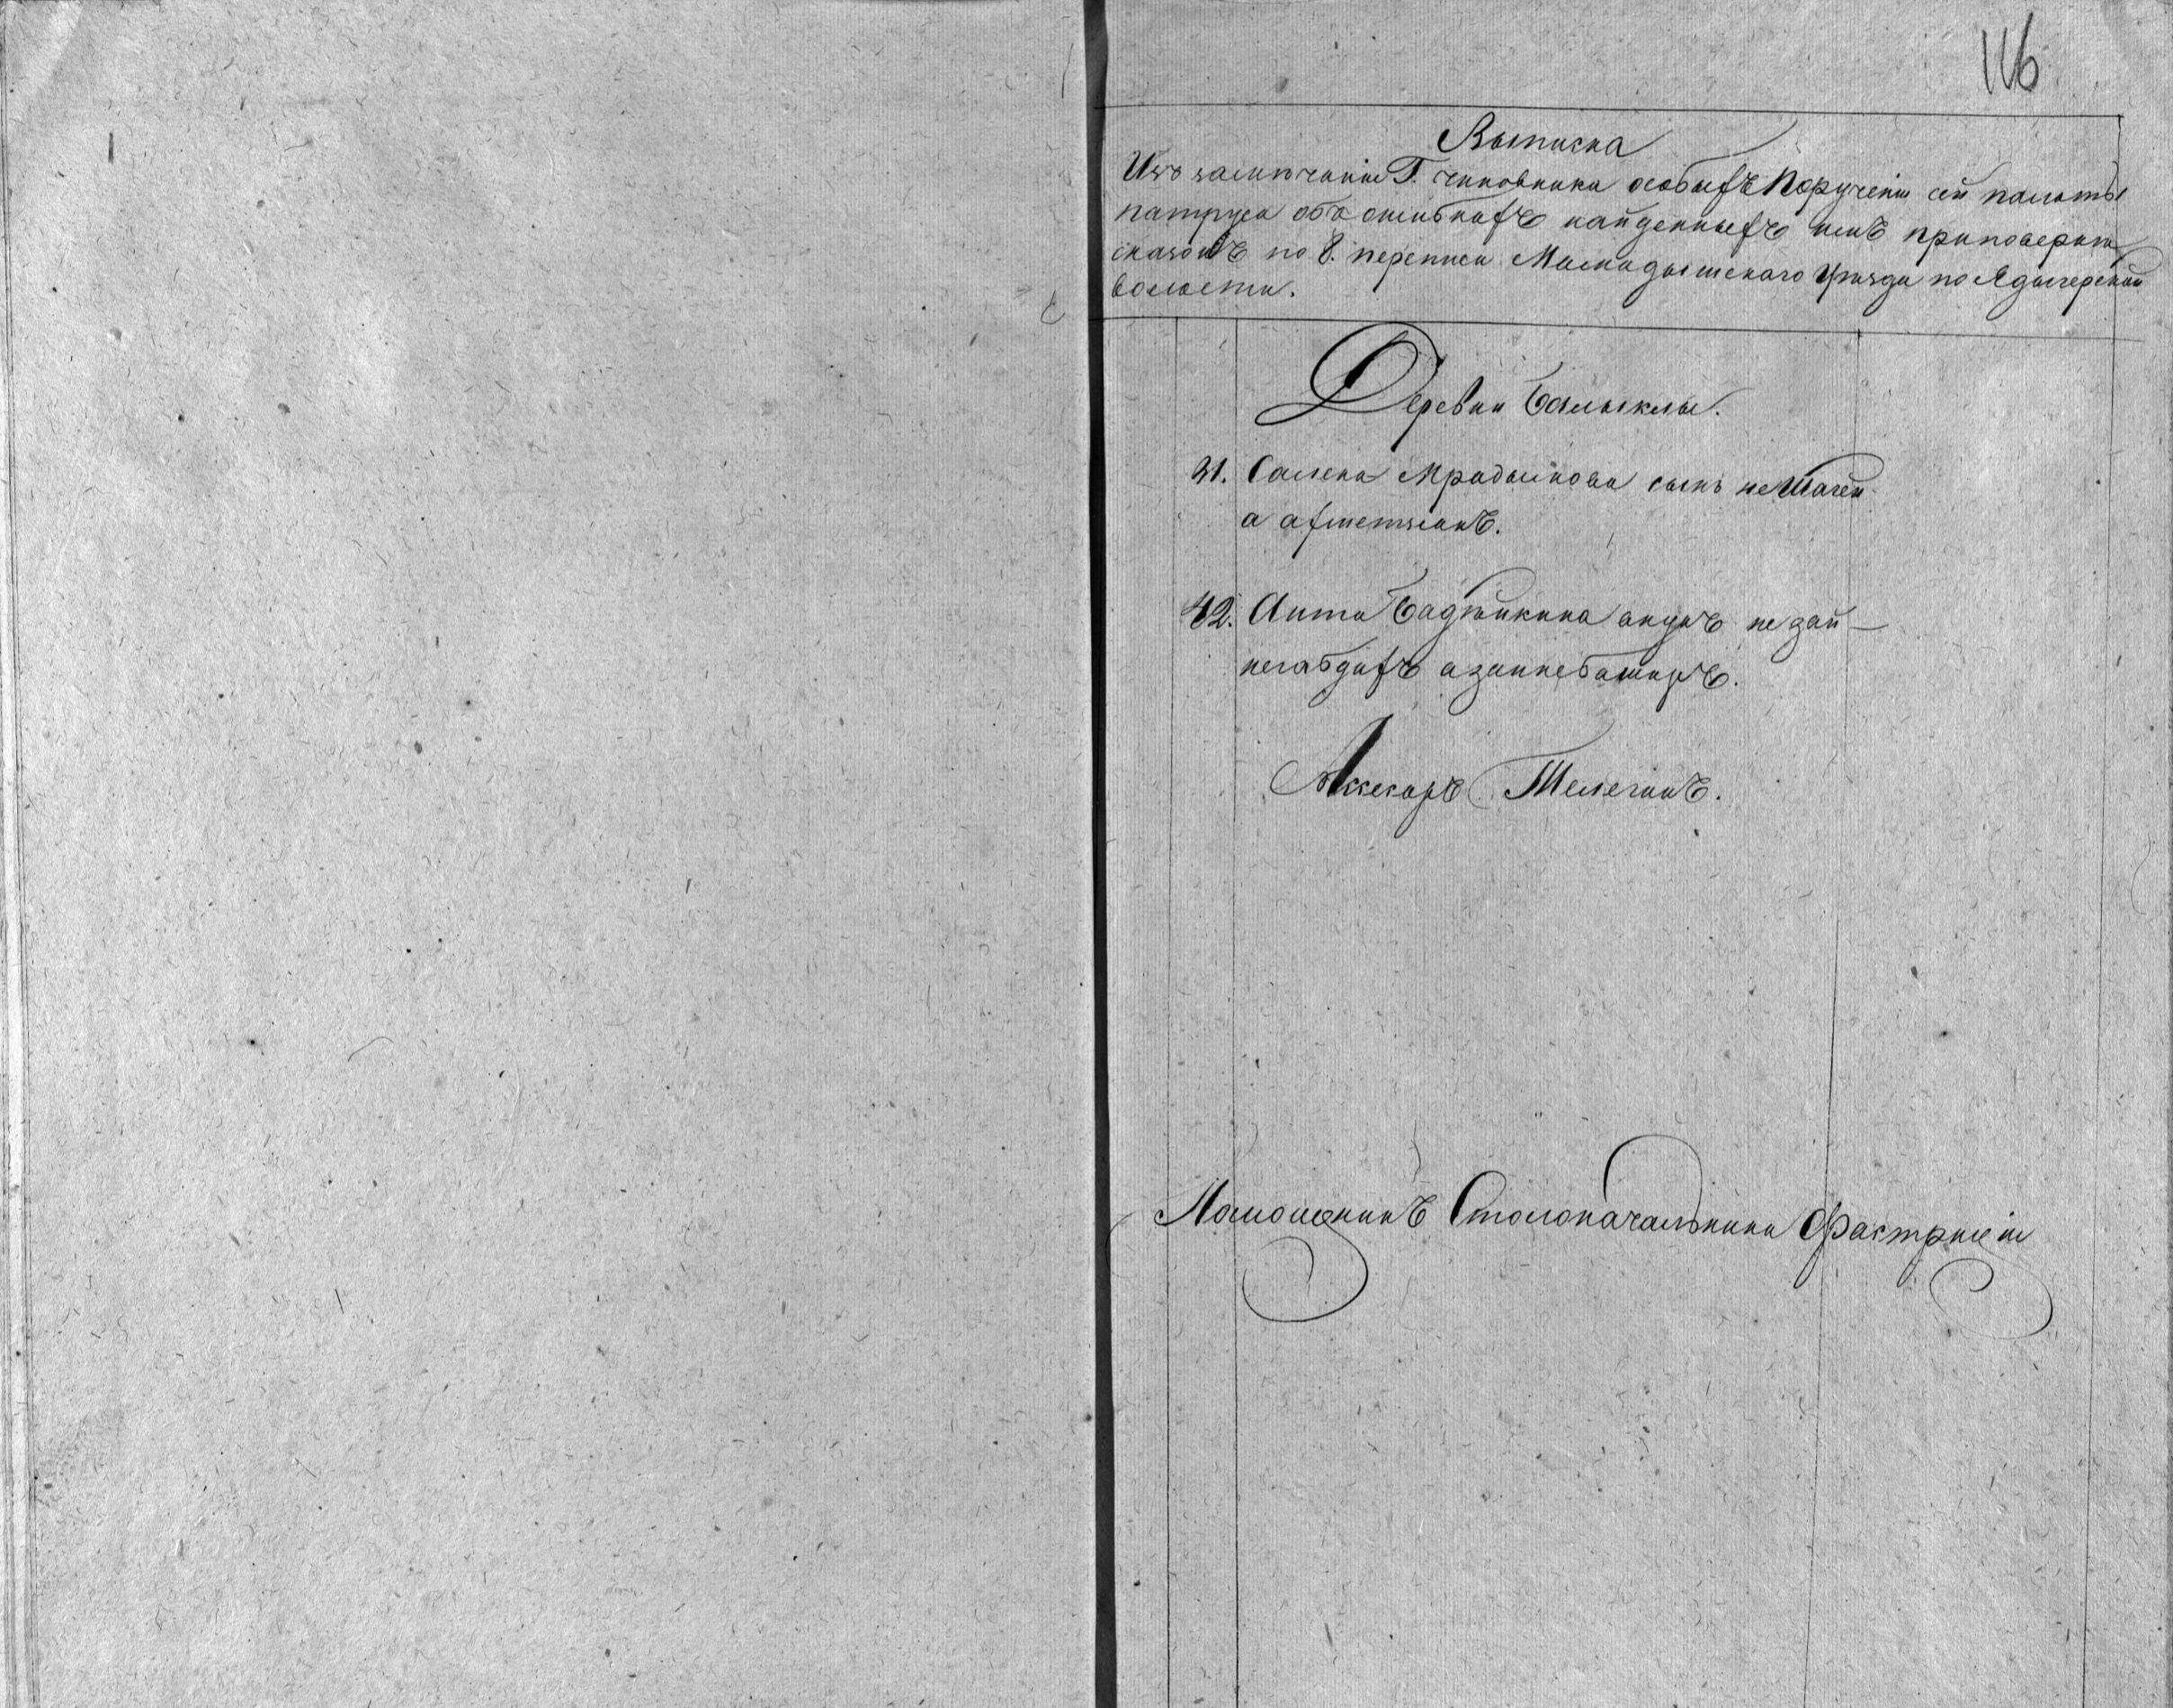 116
Выписка
Изъ замечанiй Г. чиновника особыхъ Порученiй сей палаты
патруса объ ошибкахъ найденныхъ имъ при поверки
сказокъ по 8. переписи Мамадышскаго Уѣзда по Ядыгерской
волости.
Деревни Балыклы.
31. сынъ не
а ахметзянъ.
42. внукъ не зай-
негабдихъ а зайнебаширъ.
Ассесоръ Телегинъ.
Помощникъ Столоначальника